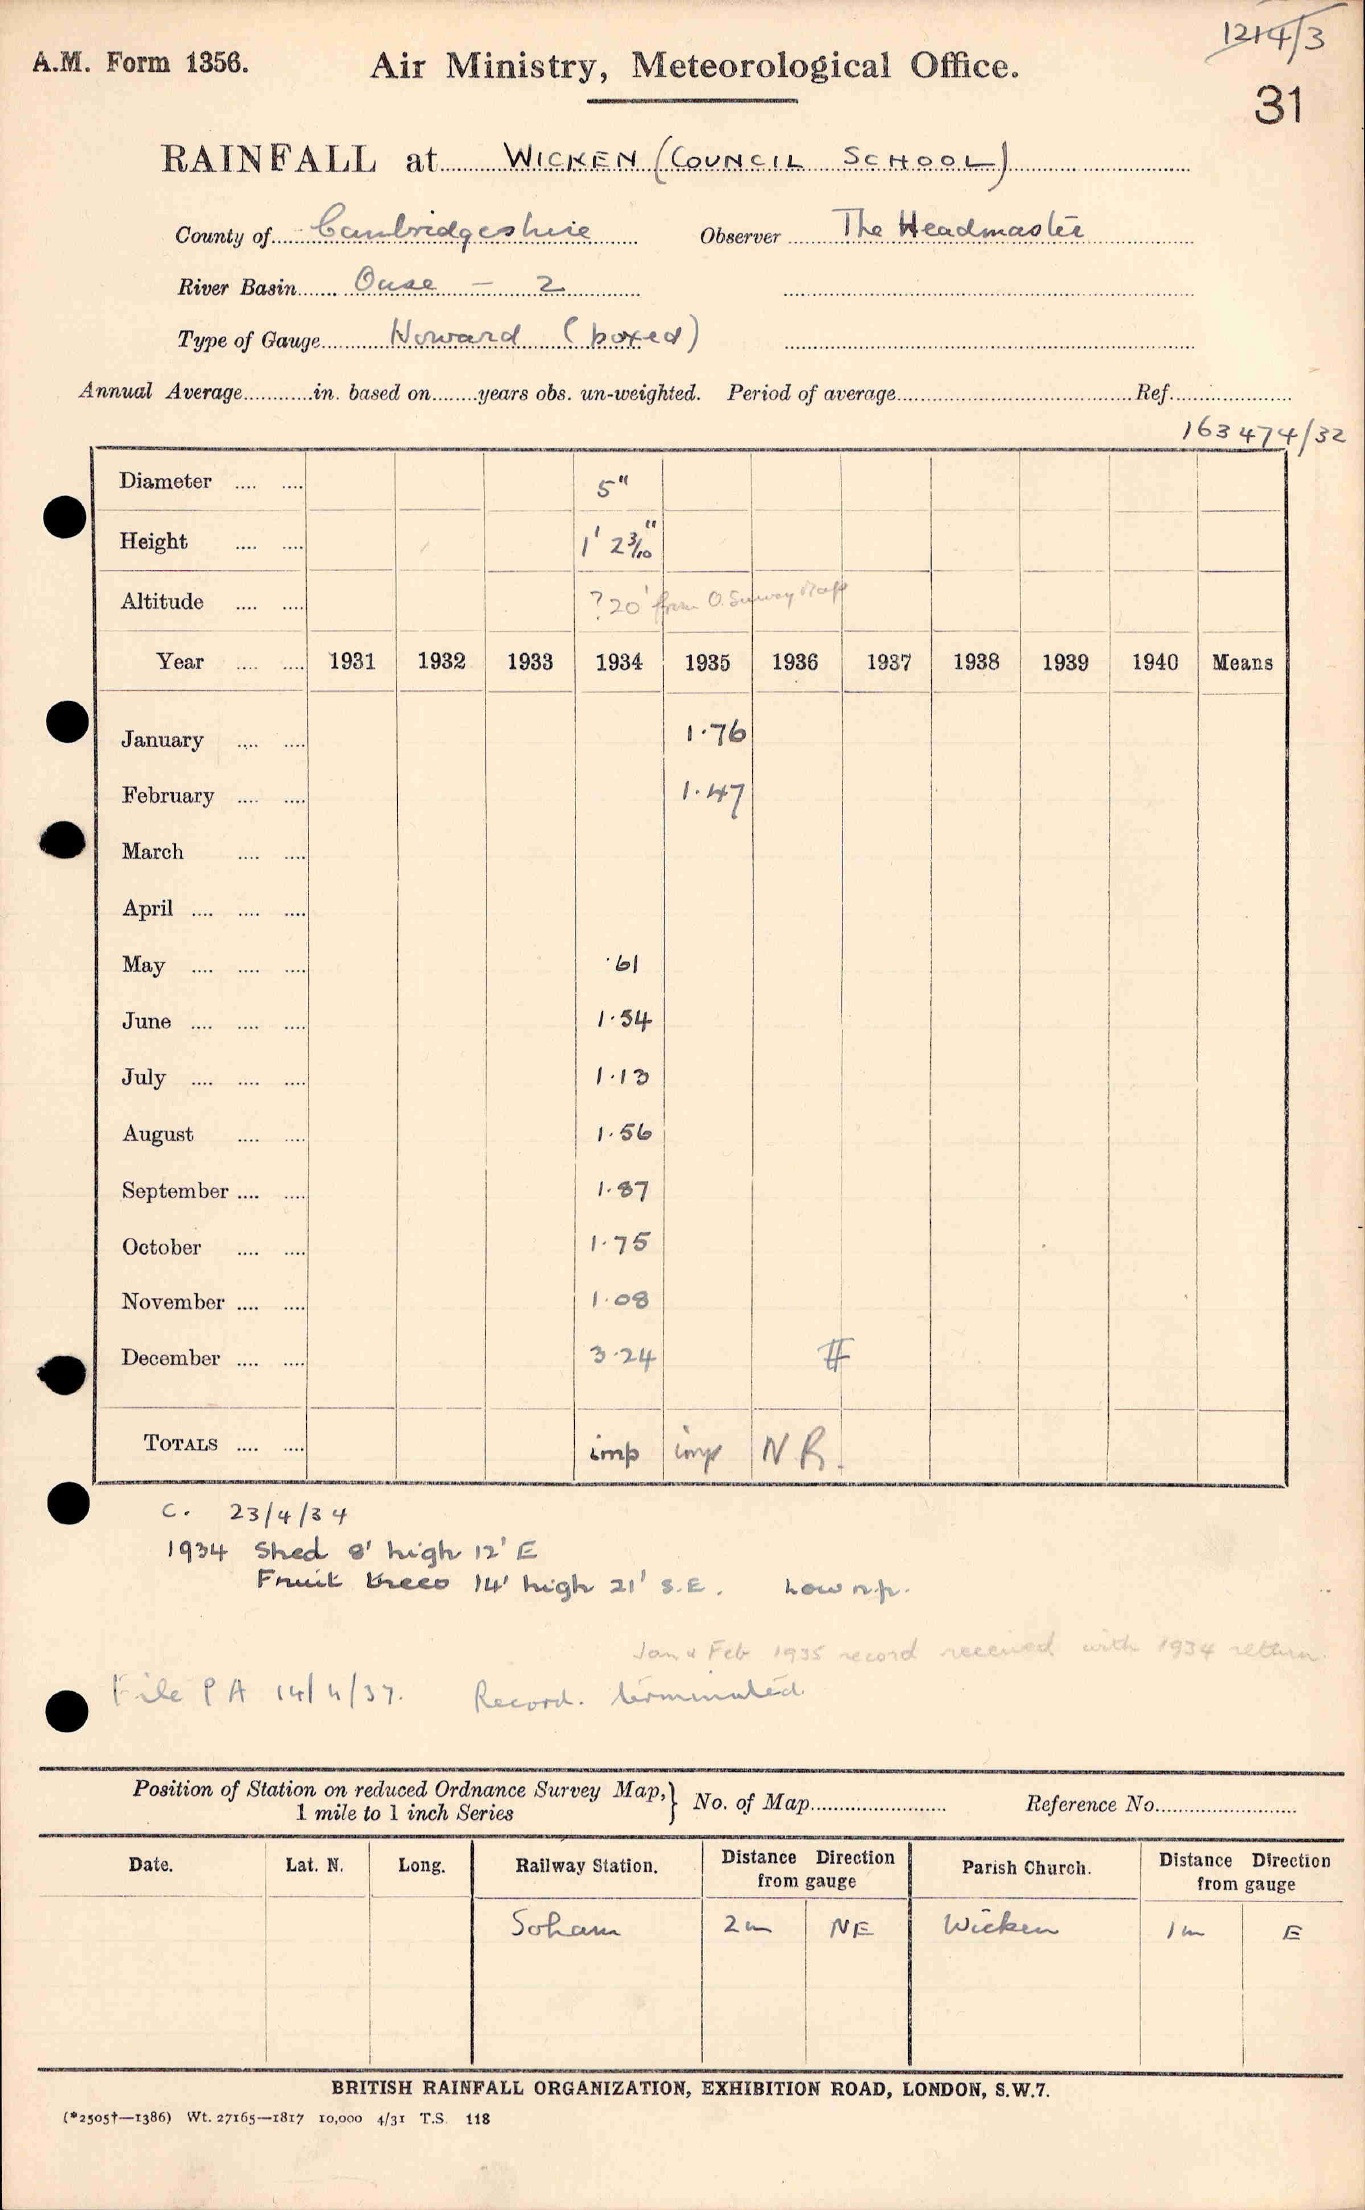 1214/3
A.M. Form 1356. Air Ministry, Meteorological Office.
31
RAINFALL at WICKEN (COUNCIL SCHOOL)
County of Cambridgeshire Observer The Headmaster
River Basin Ouse – 2
Type of Gauge Howard (boxed)
Annual Average in. based on years obs. un-weighted. Period of average Ref.
163474/32
Diameter 5"
Height 1' 2 3/10"
Altitude ? 20' from O. Survey Map
Year 1931 1932 1933 1934 1935 1936 1937 1938 1939 1940 Means
January 1.76
February 1.47
March
April
May .61
June 1.54
July 1.13
August 1.56
September 1.87
October 1.75
November 1.08
December 3.24
TOTALS imp imp N R.
C. 23/4/34
1934 Shed 8' high 12' E
Fruit trees 14' high 21' S.E. Low n.p.
Jan & Feb 1935 record received with 1934 return
File P A 14/4/37. Record. terminated
Position of Station on reduced Ordnance Survey Map, } No. of Map Reference No.
1 mile to 1 inch Series
Date. Lat. N. Long. Railway Station. Distance Direction from gauge Parish Church. Distance Direction from gauge
Soham 2m NE Wicken 1m E
BRITISH RAINFALL ORGANIZATION, EXHIBITION ROAD, LONDON, S.W.7.
(*2505†—1386) Wt. 27165—1817 10,000 4/31 T.S. 118